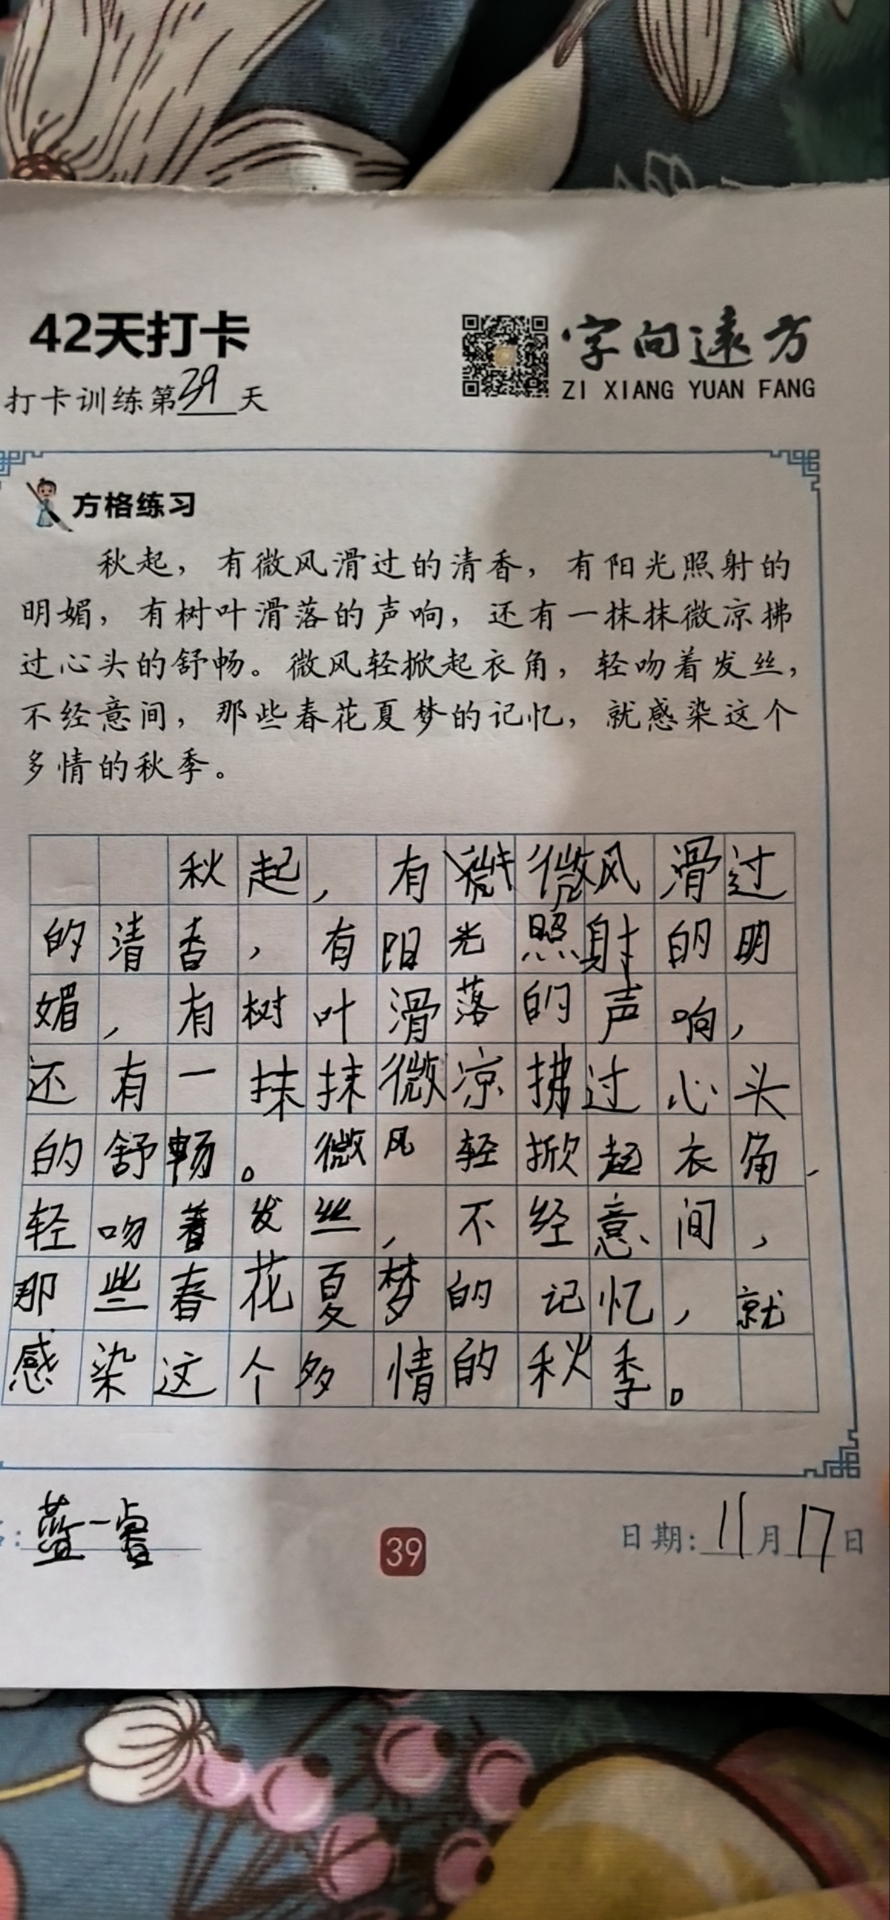 42天打卡
字向远方
ZI XIANG YUAN FANG
打卡训练第39天
方格练习
秋起，有微风滑过的清香，有阳光照射的
明媚，有树叶滑落的声响，还有一抹抹微凉拂
过心头的舒畅。微风轻掀起衣角，轻吻着发丝，
不经意间，那些春花夏梦的记忆，就感染这个
多情的秋季。
秋起，有微风滑过
的清香，有阳光照射的明
媚，有树叶滑落的声响，
还有一抹抹微凉拂过心头
的舒畅。微风轻掀起衣角，
轻吻着发丝，不经意间，
那些春花夏梦的记忆，就
感染这个多情的秋季。
：蓝一睿
39
日期：11月17日